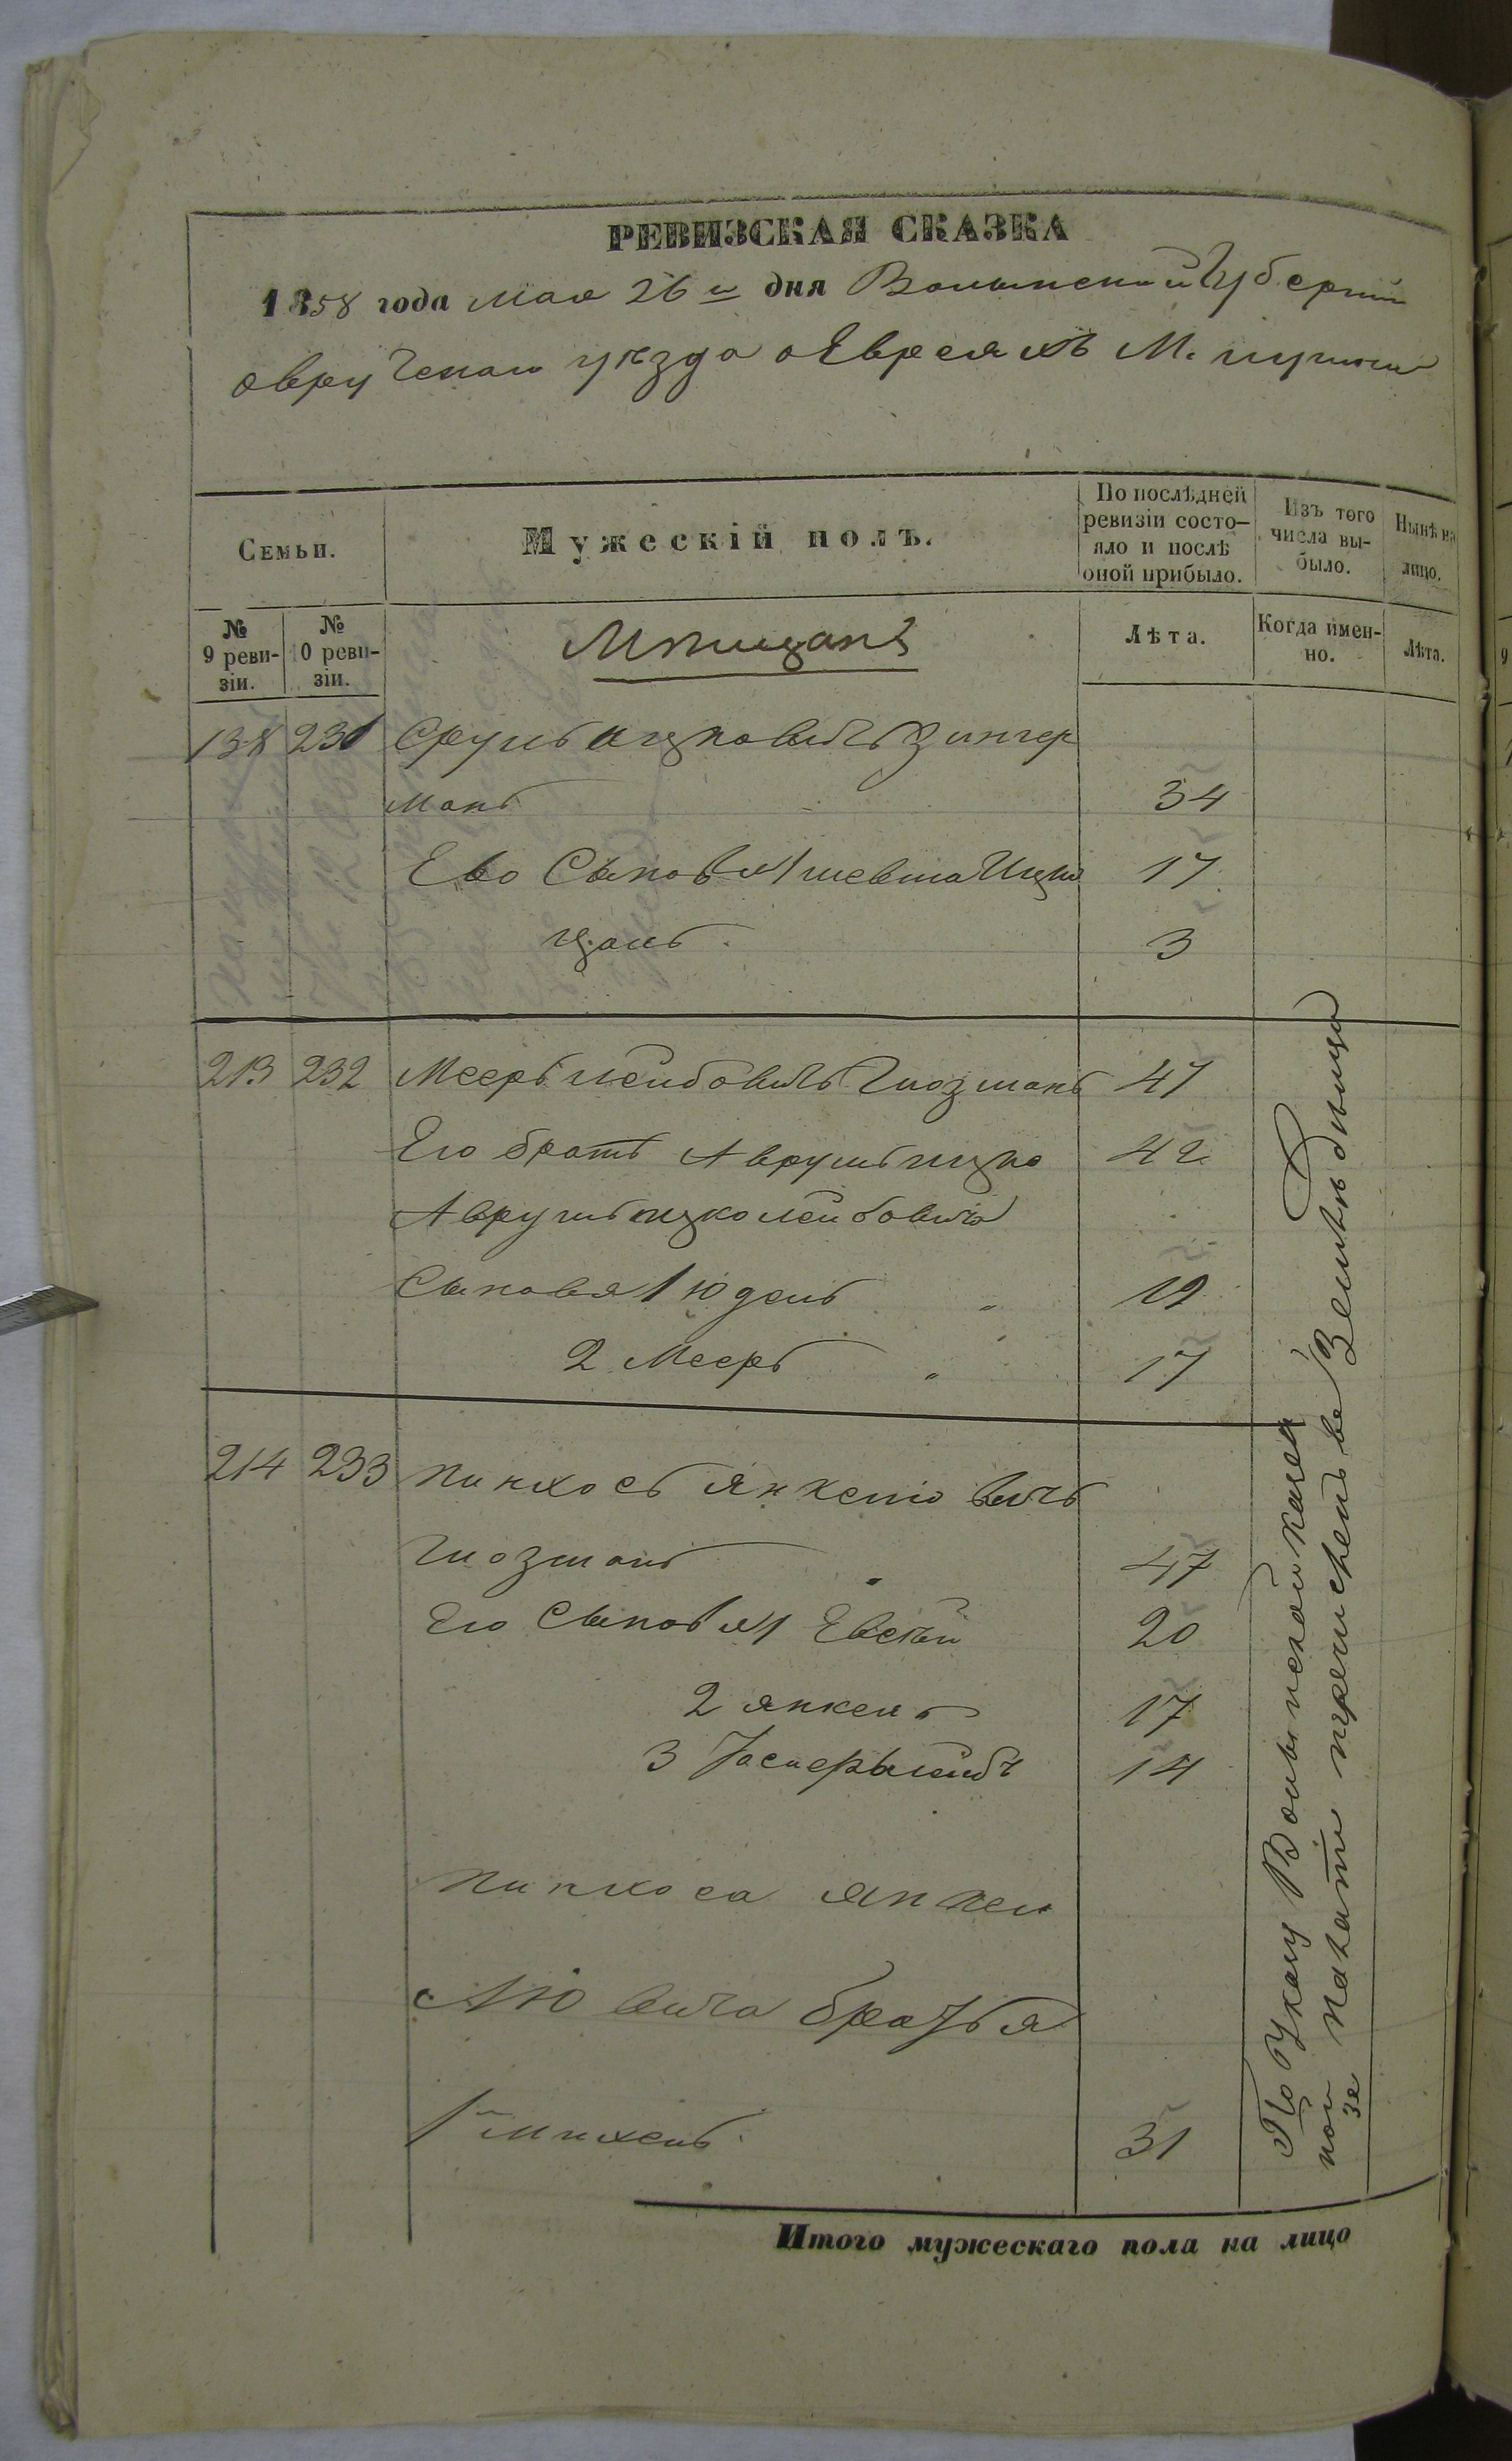 РЕВИЗСКАЯ СКАЗКА
1858 года мая 26 дня Волынской Губернии
овручскаго уѣзда о Евреяхъ М.
Семьи.
Мужескій полъ.
По послѣдней ревизіи состо-
яло и послѣ
оной прибыло.
Изъ того
числа вы-
было.
Нынѣ на
лицо.
№
9 реви-
зіи.
№
10 реви-
зіи.
Мѣщанъ
Лѣта.
Когда имен-
но.
Лѣта.
138 231 Сруль Ицковичъ Зингер
манъ 34
Ево Сыновья 1 Шевша Ицко 17
3
213 232 Мееръ Лейбовичъ Глозманъ 47
Его братъ Аврумъ Ицко 42
Аврумъ Ицко Лейбовича
Сыновья 1 Юдель 19
2 Мееръ 17
214 233 Пинхосъ Янкелио вичъ
Глозманъ 47
Его Сыновья 1 Евсѣй 20
2 Янкель 17
3 14
Пинхоса Янкел
Лю вича братья
1й Михель 31
По Указу Волынской Казен
ной Палаты перечислен въ Земледѣльцы
Итого мужескаго пола на лицо